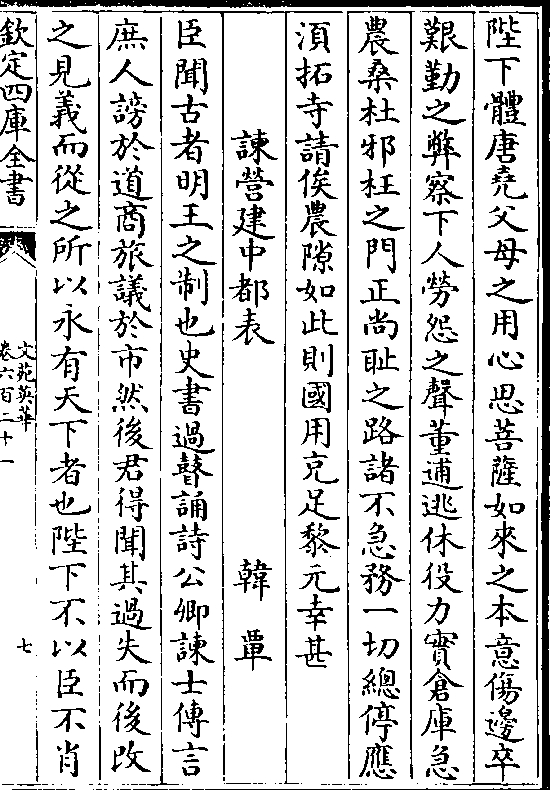 陛下體唐堯父母之用心思菩薩如來之本意傷邊卒
艱勤之弊察下人勞怨之聲董逋逃休役力實倉庫急
農桑杜邪枉之門正尚耻之路諸不急務一切總停應
湏拓寺請俟農隙如此則國用充足黎元幸甚
諫營建中都表 韓覃
臣聞古者明王之制也史書過瞽誦詩公卿諫士傳言
庶人謗於道商旅議於市然後君得聞其過失而後改
之見義而從之所以永有天下者也陛下不以臣不肖
欽定四庫全書
文苑英華
卷六百二十一
七